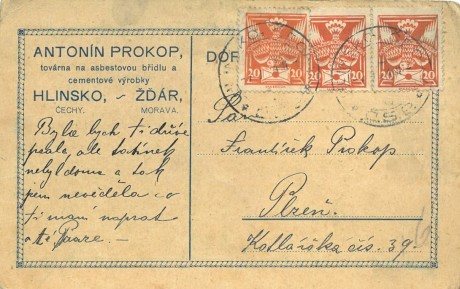 ANTONÍN PROKOP,
továrna na asbestovou břidlu a
cementové výrobky
HLINSKO, - ŽĎÁR,
ČECHY. MORAVA.
DOP
20 20 20 20 20 20
Byla bych Ti dříve
psala, ale tatínek
nebyl doma a tak
jsem nevěděla co
Ti mám napsat
Pan
František Prokop
Plzeň.
Kotlářská čís. 39.